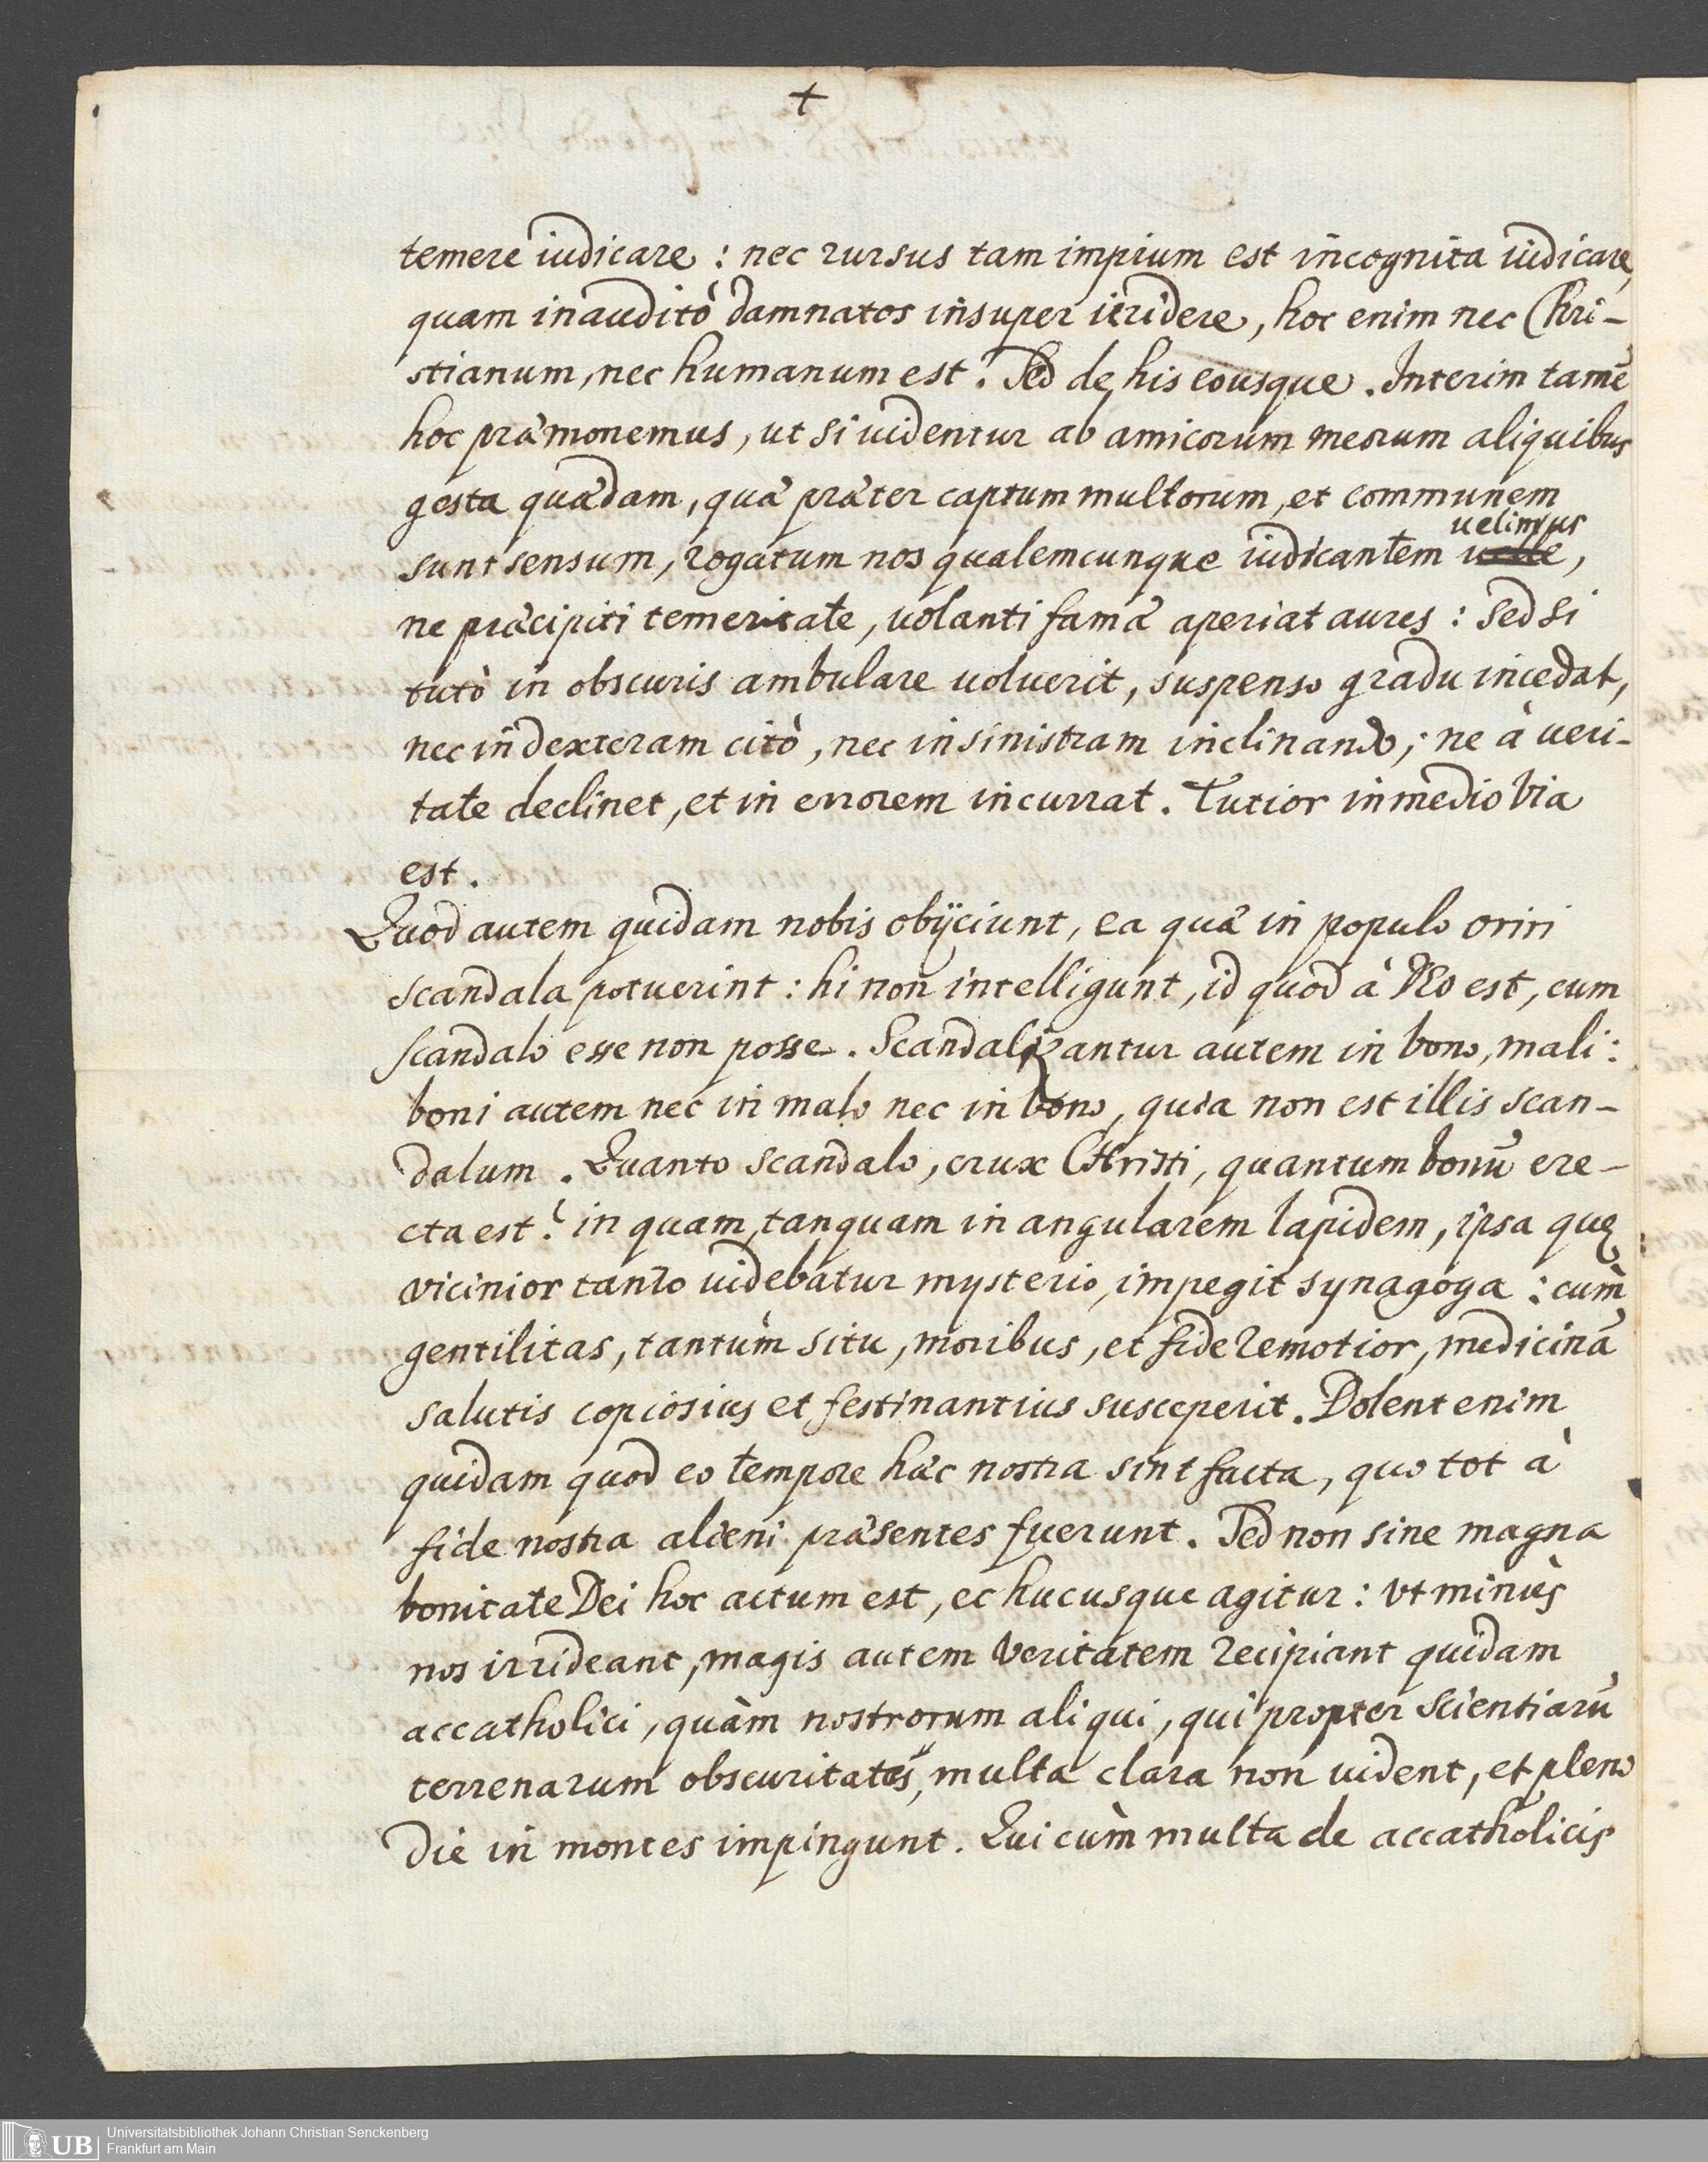 +
temere iudicare : nec rursus tam impium est incognita iudicare,
quam inauditò damnatos insuper irridere, hoc enim nec Chri-
stianum, nec humanum est. Sed de his eousque. Interim tamē
hoc præmonemus, ut si uidentur ab amicorum meorum aliquibus
gesta quædam, quæ præter captum multorum, et communem
uelimus
sunt sensum, rogatum nos qualemcunque iudicantem uelle,
ne præcipiti temeritate, uolanti famæ aperiat aures : sed si
tutò in obscuris ambulare uoluerit, suspenso gradu incedat,
nec in dexteram citò, nec in sinistram inclinando; ne à ueri-
tate declinet, et in errorem incurrat. Tutior in medio via
est.
Quod autem quidam nobis obijciunt, ea quæ in populo oriri
scandala potuerint : hi non intelligunt, id quod à DEo est, cum
scandalo esse non posse. Scandalizantur autem in bono, mali :
boni autem nec in malo nec in bono, quia non est illis scan-
dalum. Quanto scandalo, crux CHristi, quantum bonū ere-
cta est? in quam, tanquam in angularem lapidem, ipsa quę
vicinior tanto uidebatur mysterio, impegit synagoga : cùm
gentilitas, tantùm situ, moribus, et fide remotior, medicinā
salutis copiosius et festinantius susceperit. Dolent enim
quidam quod eo tempore hæc nostra sint facta, quo tot à
fide nostra alieni præsentes fuerunt. Sed non sine magna
bonitate Dei hoc actum est, et hucusque agitur : vt minùs
nos irrideant, magis autem veritatem recipiant quidam
accatholici, quàm nostrorum aliqui, qui propter scientiarū
terrenarum obscuritates, multa clara non uident, et pleno
die in montes impingunt. Qui cùm multa de accatholicis
UB Universitätsbibliothek Johann Christian Senckenberg
Frankfurt am Main